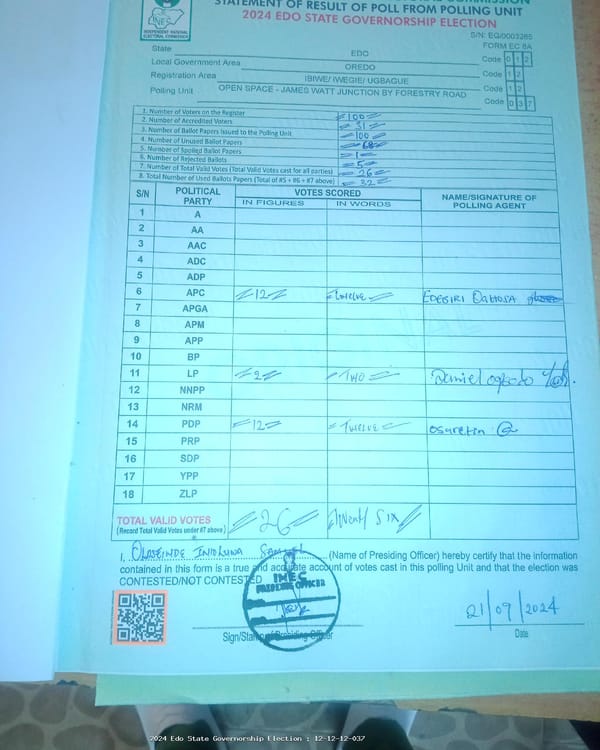 STATEMENT OF RESULT OF POLL FROM POLLING UNIT
2024 EDO STATE GOVERNORSHIP ELECTION
INDEPENDENT NATIONAL ELECTORAL COMMISSION
S/N: EG/0003265
FORM EC 8A
State EDO Code 0 1 2
Local Government Area OREDO Code 1 2
Registration Area IBIWE/ IWEGIE/ UGBAGUE Code 1 2
Polling Unit OPEN SPACE - JAMES WATT JUNCTION BY FORESTRY ROAD Code 0 3 7
1. Number of Voters on the Register 100
2. Number of Accredited Voters 31
3. Number of Ballot Papers Issued to the Polling Unit 100
4. Number of Unused Ballot Papers 68
5. Number of Spoiled Ballot Papers 1
6. Number of Rejected Ballots 5
7. Number of Total Valid Votes (Total Valid Votes cast for all parties) 26
8. Total Number of Used Ballots Papers (Total of #5 + #6 + #7 above) 32
S/N POLITICAL PARTY VOTES SCORED NAME/SIGNATURE OF POLLING AGENT
IN FIGURES IN WORDS
1 A
2 AA
3 AAC
4 ADC
5 ADP
6 APC 12 TWELVE
7 APGA
8 APM
9 APP
10 BP
11 LP 2 TWO Daniel
12 NNPP
13 NRM
14 PDP 12 TWELVE osaretin
15 PRP
16 SDP
17 YPP
18 ZLP
TOTAL VALID VOTES 26 Twenty SIX
(Record Total Valid Votes under #7 above)
I, (Name of Presiding Officer) hereby certify that the information
contained in this form is a true and accurate account of votes cast in this polling Unit and that the election was
CONTESTED/NOT CONTESTED
INEC
PRESIDING OFFICER
21/09/2024
Sign/Stamp of Presiding Officer Date
2024 Edo State Governorship Election : 12-12-12-037